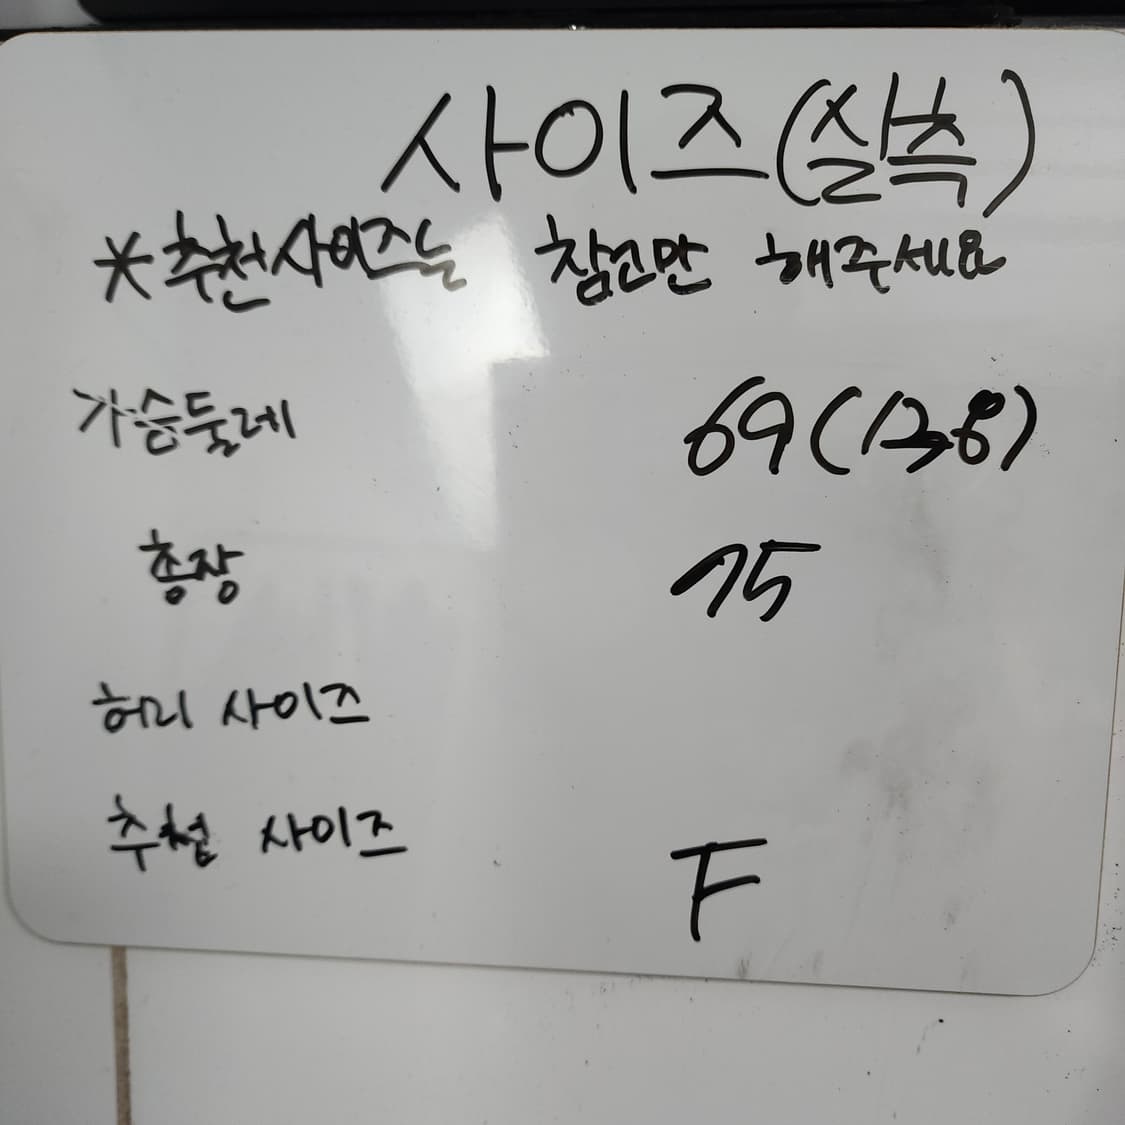 사이즈(실측)
*추천사이즈는 참고만 해주세요
가슴둘레 69(138)
총장 75
허리 사이즈
추천 사이즈 F